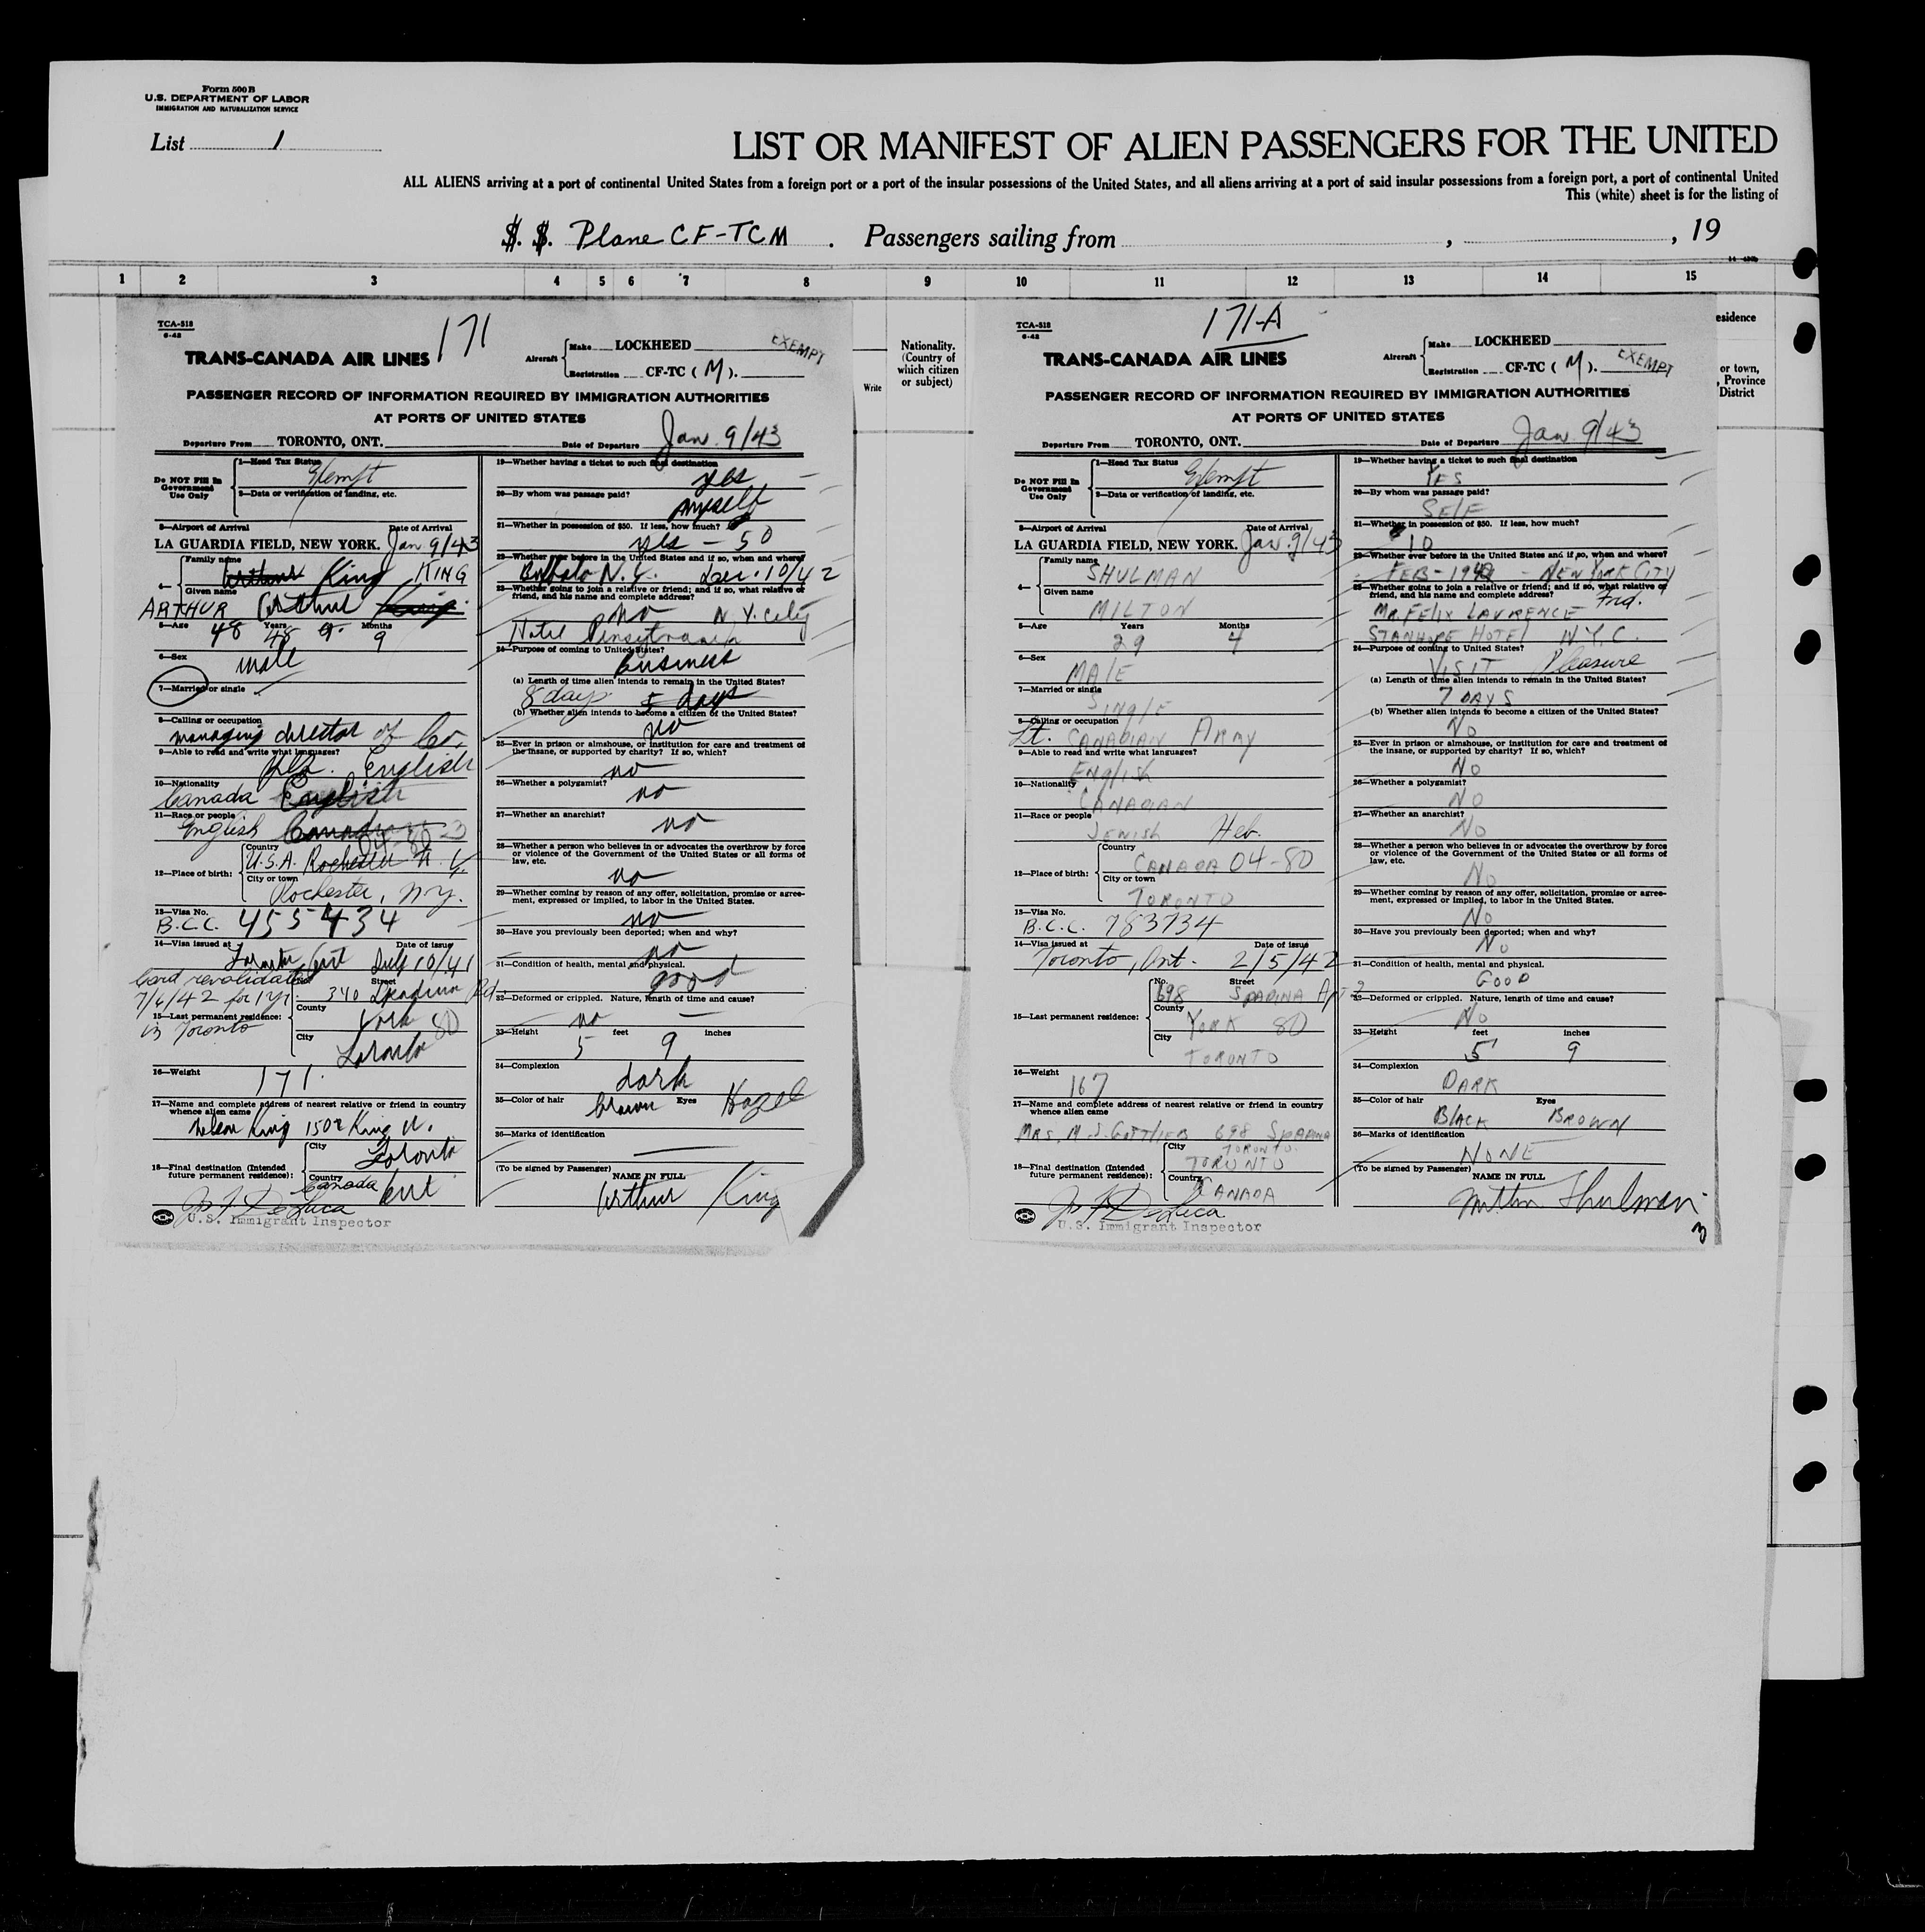 Form 500 B
U.S. DEPARTMENT OF LABOR
IMMIGRATION AND NATURALIZATION SERVICE
List 1
LIST OR MANIFEST OF ALIEN PASSENGERS FOR THE UNITED
ALL ALIENS arriving at a port of continental United States from a foreign port or a port of the insular possessions of the United States, and all aliens arriving at a port of said insular possessions from a foreign port, a port of continental United
This (white) sheet is for the listing of
S. S. Plane CF-TCM . Passengers sailing from , , 19
1 2 3 4 5 6 7 8 9 10 11 12 13 14 15
Nationality.
(Country of
which citizen
or subject)
Write
esidence
or town,
, Province
District
TCA-518
6-42
171
TRANS-CANADA AIR LINES
Aircraft Make LOCKHEED
Registration CF-TC (M).
EXEMPT
PASSENGER RECORD OF INFORMATION REQUIRED BY IMMIGRATION AUTHORITIES
AT PORTS OF UNITED STATES
Departure From TORONTO, ONT. Date of Departure Jan. 9/43
Do NOT Fill In
Government
Use Only
1—Head Tax Status Exempt
2—Data or verification of landing, etc.
3—Airport of Arrival Date of Arrival
LA GUARDIA FIELD, NEW YORK. Jan 9/43
4— Family name Arthur King KING
Given name
ARTHUR Arthur King
5—Age Years Months
48 48 9
6—Sex male
7—Married or single
8—Calling or occupation
managing director of Co.
9—Able to read and write what languages?
yes. English
10—Nationality
Canada English
11—Race or people
English Canad 04-80-23
12—Place of birth: Country
U.S.A. Rochester N.Y.
City or town
Rochester, N.Y.
13—Visa No.
B.C.C. 455434
14—Visa issued at Date of issue
Toronto Ont July 10/41
Card revalidated
7/6/42 for 1 yr.
in Toronto
15—Last permanent residence:
Street
340 Spadina Rd.
County
York 80
City
Toronto
16—Weight 171.
17—Name and complete address of nearest relative or friend in country
whence alien came
Nelson King 1502 King W.
18—Final destination (Intended
future permanent residence):
City
Toronto
Country
Canada Ont
U.S. Immigrant Inspector
19—Whether having a ticket to such final destination
yes
20—By whom was passage paid?
myself
21—Whether in possession of $50. If less, how much?
yes - 50
22—Whether ever before in the United States and if so, when and where?
Buffalo N.Y. Dec. 10/42
23—Whether going to join a relative or friend; and if so, what relative or
friend, and his name and complete address?
no N.Y. City
Hotel Pensylvania
24—Purpose of coming to United States?
business
(a) Length of time alien intends to remain in the United States?
8 days 5 days
(b) Whether alien intends to become a citizen of the United States?
no
25—Ever in prison or almshouse, or institution for care and treatment of
the insane, or supported by charity? If so, which?
no
26—Whether a polygamist?
no
27—Whether an anarchist?
no
28—Whether a person who believes in or advocates the overthrow by force
or violence of the Government of the United States or all forms of
law, etc.
no
29—Whether coming by reason of any offer, solicitation, promise or agree-
ment, expressed or implied, to labor in the United States.
no
30—Have you previously been deported; when and why?
no
31—Condition of health, mental and physical.
good
32—Deformed or crippled. Nature, length of time and cause?
no —
33—Height feet inches
5 9
34—Complexion
dark
35—Color of hair Eyes
brown Hazel
36—Marks of identification
—
(To be signed by Passenger) NAME IN FULL
Arthur King
TCA-518
6-42
171-A
TRANS-CANADA AIR LINES
Aircraft Make LOCKHEED
Registration CF-TC (M).
EXEMPT
PASSENGER RECORD OF INFORMATION REQUIRED BY IMMIGRATION AUTHORITIES
AT PORTS OF UNITED STATES
Departure From TORONTO, ONT. Date of Departure Jan. 9/43
Do NOT Fill In
Government
Use Only
1—Head Tax Status Exempt
2—Data or verification of landing, etc.
3—Airport of Arrival Date of Arrival
LA GUARDIA FIELD, NEW YORK. Jan. 9/43
4— Family name
SHULMAN
Given name
MILTON
5—Age Years Months
29 4
6—Sex
MALE
7—Married or single
SINGLE
8—Calling or occupation
Lt. CANADIAN ARMY
9—Able to read and write what languages?
ENGLISH
10—Nationality
CANADIAN
11—Race or people
JEWISH Heb.
12—Place of birth: Country
CANADA 04-80
City or town
TORONTO
13—Visa No.
B.C.C. 783734
14—Visa issued at Date of issue
Toronto, Ont. 2/5/42
15—Last permanent residence:
No. Street
698 SPADINA APT 2
County
YORK 80
City
TORONTO
16—Weight
167
17—Name and complete address of nearest relative or friend in country
whence alien came
MRS. M. J. GOTTLIEB 698 SPADINA
TORONTO.
18—Final destination (Intended
future permanent residence):
City
TORONTO
Country
CANADA
U.S. Immigrant Inspector
19—Whether having a ticket to such final destination
YES
20—By whom was passage paid?
SELF
21—Whether in possession of $50. If less, how much?
10
22—Whether ever before in the United States and if so, when and where?
FEB - 1942 - NEW YORK CITY
23—Whether going to join a relative or friend; and if so, what relative or
friend, and his name and complete address? Frd.
MR. FELIX LAWRENCE
STANHOPE HOTEL N.Y.C.
24—Purpose of coming to United States?
VISIT Pleasure
(a) Length of time alien intends to remain in the United States?
7 DAYS
(b) Whether alien intends to become a citizen of the United States?
NO
25—Ever in prison or almshouse, or institution for care and treatment of
the insane, or supported by charity? If so, which?
NO
26—Whether a polygamist?
NO
27—Whether an anarchist?
NO
28—Whether a person who believes in or advocates the overthrow by force
or violence of the Government of the United States or all forms of
law, etc.
NO
29—Whether coming by reason of any offer, solicitation, promise or agree-
ment, expressed or implied, to labor in the United States.
NO
30—Have you previously been deported; when and why?
NO
31—Condition of health, mental and physical.
GOOD
32—Deformed or crippled. Nature, length of time and cause?
NO
33—Height feet inches
5' 9
34—Complexion
DARK
35—Color of hair Eyes
BLACK BROWN
36—Marks of identification
NONE
(To be signed by Passenger) NAME IN FULL
Milton Shulman
3